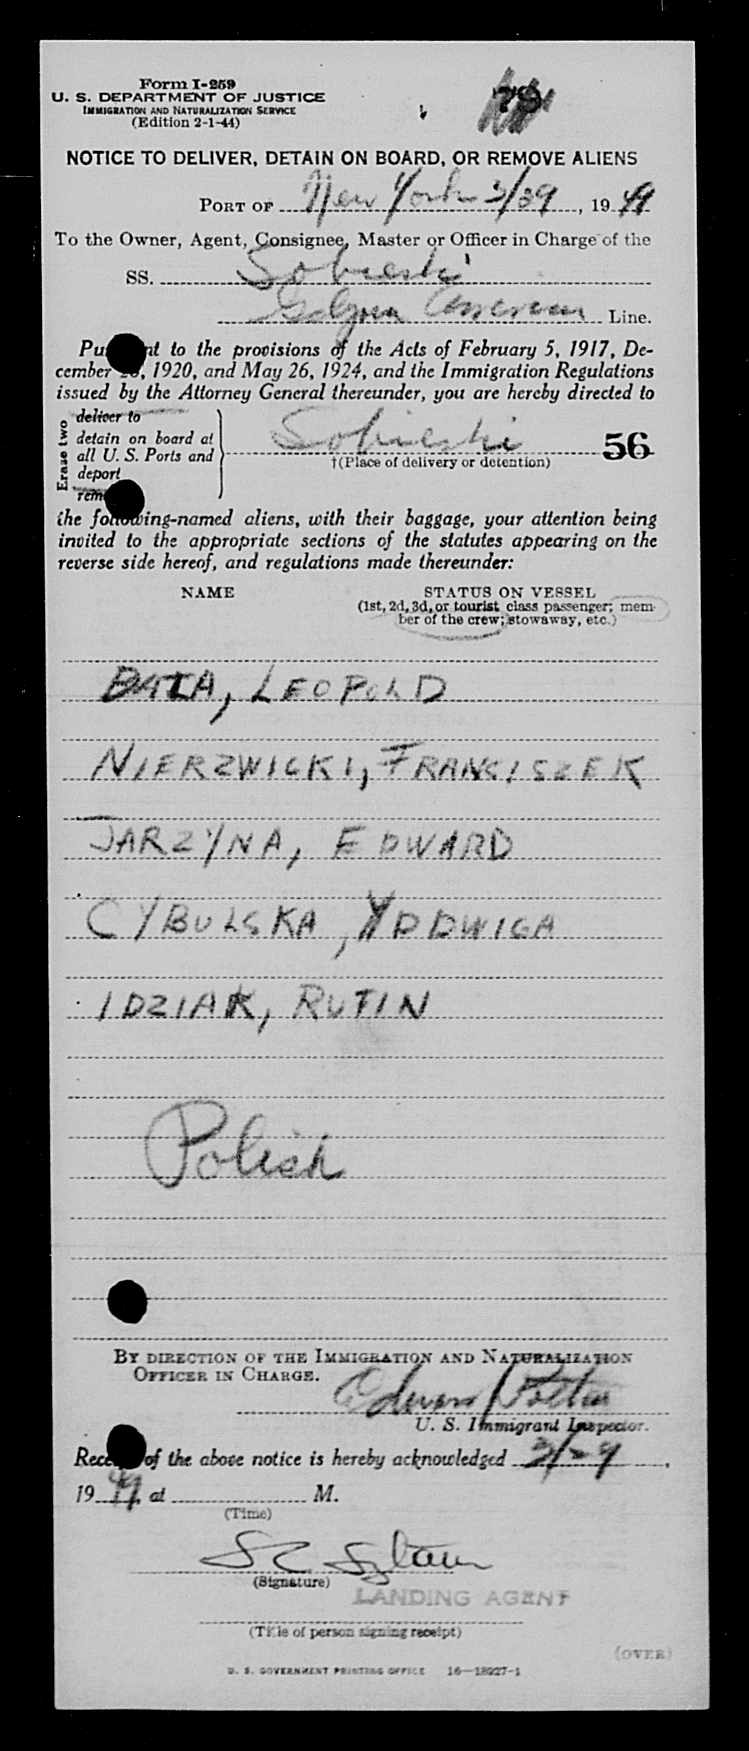 Form I-259
U. S. DEPARTMENT OF JUSTICE
IMMIGRATION AND NATURALIZATION SERVICE
(Edition 2-1-44)
NOTICE TO DELIVER, DETAIN ON BOARD, OR REMOVE ALIENS
PORT OF New York 3/29, 1949
To the Owner, Agent, Consignee, Master or Officer in Charge of the
SS. Sobieski
American Line.
to the provisions of the Acts of February 5, 1917, De-
cember , 1920, and May 26, 1924, and the Immigration Regulations
issued by the Attorney General thereunder, you are hereby directed to
Erase two
deliver to
detain on board at
all U. S. Ports and
deport
Sobieski 56
†(Place of delivery or detention)
the following-named aliens, with their baggage, your attention being
invited to the appropriate sections of the statutes appearing on the
reverse side hereof, and regulations made thereunder:
NAME STATUS ON VESSEL
(1st, 2d, 3d, or tourist class passenger; mem-
ber of the crew; stowaway, etc.)
BATA, LEOPOLD
NIERZWICKI, FRANCISZEK
JARZYNA, EDWARD
CYBULSKA,
IDZIAK, RUTIN
Polish
BY DIRECTION OF THE IMMIGRATION AND NATURALIZATION
OFFICER IN CHARGE.
U. S. Immigrant Inspector.
of the above notice is hereby acknowledged 3/29,
1949, at M.
(Time)
(Signature)
LANDING AGENT
(Title of person signing receipt)
(OVER)
U. S. GOVERNMENT PRINTING OFFICE 16—18927-1